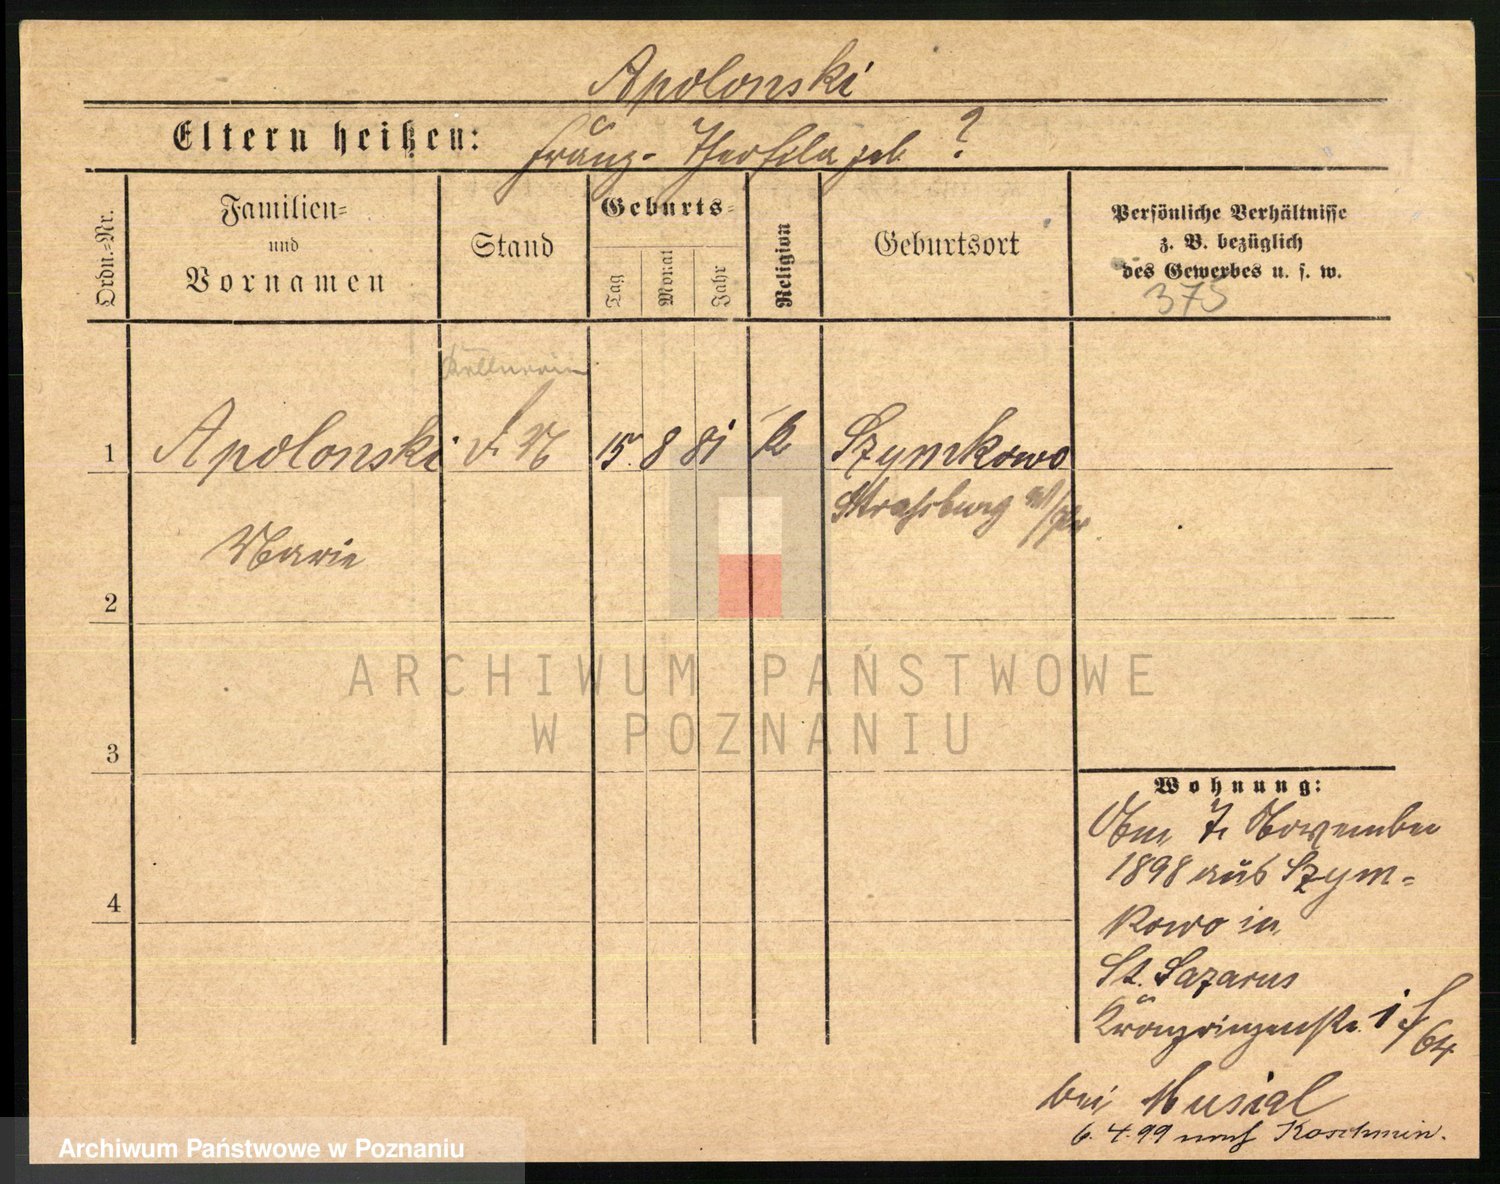 Apolonski
Eltern heißen: Franz - Theofila geb ?
Ordn.=Nr.
Familien=
und
Vornamen
Stand
Geburts=
Tag
Monat
Jahr
Religion
Geburtsort
Persönliche Verhältnisse
z. B. bezüglich
des Gewerbes u. s. w.
375
Kellnerin
1 Apolonski 15. 8 81 k Szymkowo
Strasburg W/Pr.
Marie
2
ARCHIWUM PAŃSTWOWE
W POZNANIU
3
Wohnung:
Am 7. November
1898 aus Szym=
4
kowo in
St. Lazarus
Kronprinzenstr. 1 f/64
bei Musial
6. 4. 99 nach Koschmin.
Archiwum Państwowe w Poznaniu